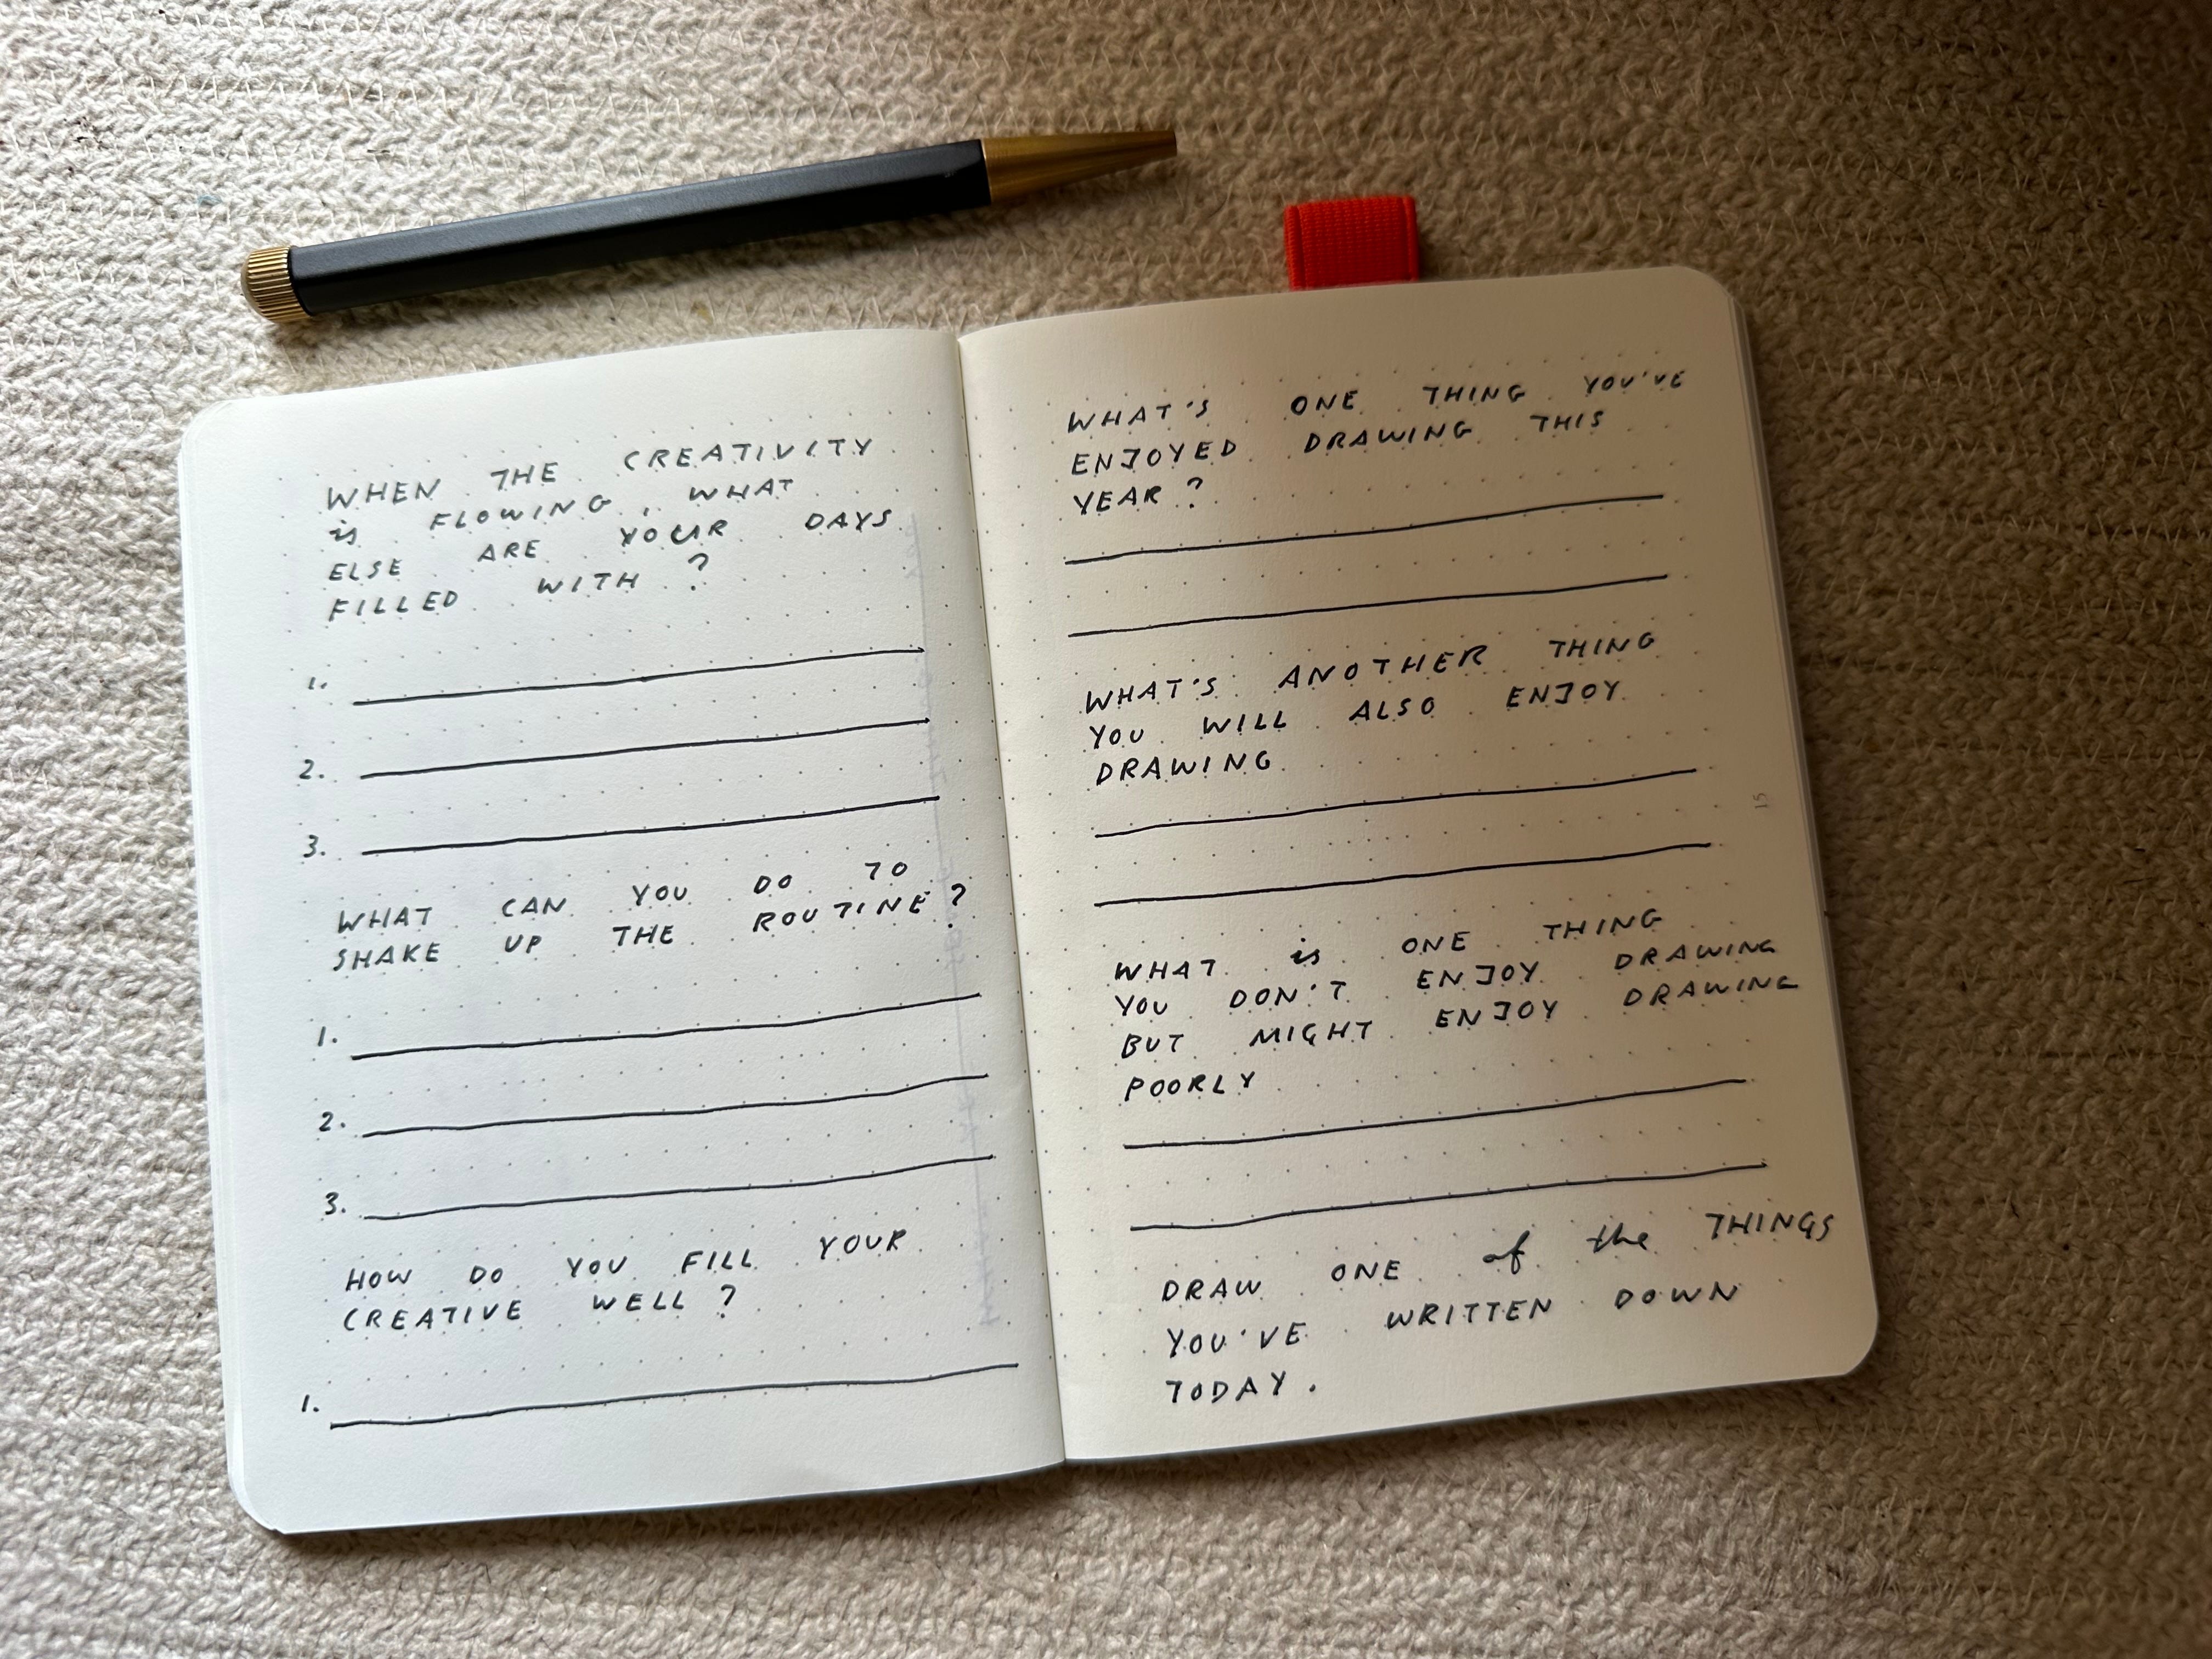 WHEN THE CREATIVITY
is FLOWING, WHAT
ELSE ARE YOUR DAYS
FILLED WITH?
1.
2.
3.
WHAT CAN YOU DO TO
SHAKE UP THE ROUTINE?
1.
2.
3.
HOW DO YOU FILL YOUR
CREATIVE WELL?
1.
WHAT'S ONE THING YOU'VE
ENJOYED DRAWING THIS
YEAR?
WHAT'S ANOTHER THING
YOU WILL ALSO ENJOY
DRAWING
15
WHAT is ONE THING
YOU DON'T ENJOY DRAWING
BUT MIGHT ENJOY DRAWING
POORLY
DRAW ONE of the THINGS
YOU'VE WRITTEN DOWN
TODAY.